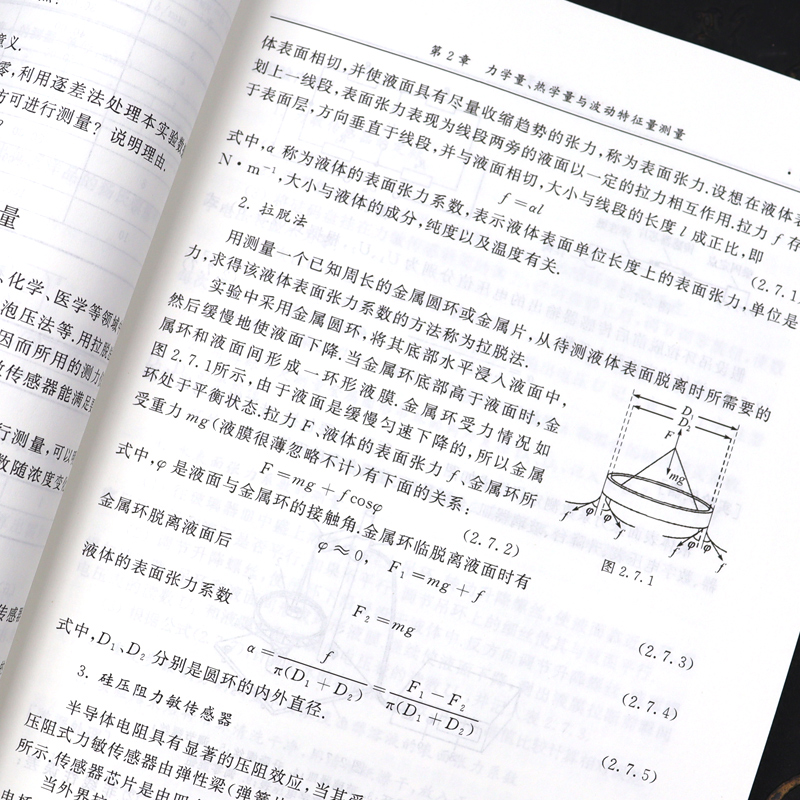 意义.
零,利用逐差法处理本实验数
方可进行测量？说明理由.
量
、化学、医学等领域
泡压法等.用拉脱
因而所用的测力
敏传感器能满足
行测量,可以
数随浓度变
传感器
第2章 力学量、热学量与波动特征量测量
体表面相切,并使液面具有尽量收缩趋势的张力,称为表面张力.设想在液体表
划上一线段,表面张力表现为线段两旁的液面以一定的拉力相互作用.拉力 f 存
于表面层,方向垂直于线段,并与液面相切,大小与线段的长度 l 成正比,即
f=αl (2.7.1)
式中,α 称为液体的表面张力系数,表示液体表面单位长度上的表面张力,单位是
N·m⁻¹,大小与液体的成分,纯度以及温度有关.
2. 拉脱法
用测量一个已知周长的金属圆环或金属片,从待测液体表面脱离时所需要的
力,求得该液体表面张力系数的方法称为拉脱法.
实验中采用金属圆环,将其底部水平浸入液面中,
然后缓慢地使液面下降.当金属环底部高于液面时,金
属环和液面间形成一环形液膜.金属环受力情况如
图 2.7.1所示,由于液面是缓慢匀速下降的,所以金属
环处于平衡状态.拉力 F、液体的表面张力 f、金属环所
受重力 mg(液膜很薄忽略不计)有下面的关系:
F=mg+fcosφ (2.7.2)
式中,φ 是液面与金属环的接触角.金属环临脱离液面时有
φ≈0, F₁=mg+f (2.7.3)
金属环脱离液面后
F₂=mg (2.7.4)
液体的表面张力系数
α=f/π(D₁+D₂)=F₁−F₂/π(D₁+D₂) (2.7.5)
式中,D₁、D₂ 分别是圆环的内外直径.
3. 硅压阻力敏传感器
半导体电阻具有显著的压阻效应,当其受
压阻式力敏传感器由弹性梁(弹簧
所示.传感器芯片是由四
当外界
电桥
D₁
D₂
F
mg
f φ φ f
f φ φ f
图 2.7.1